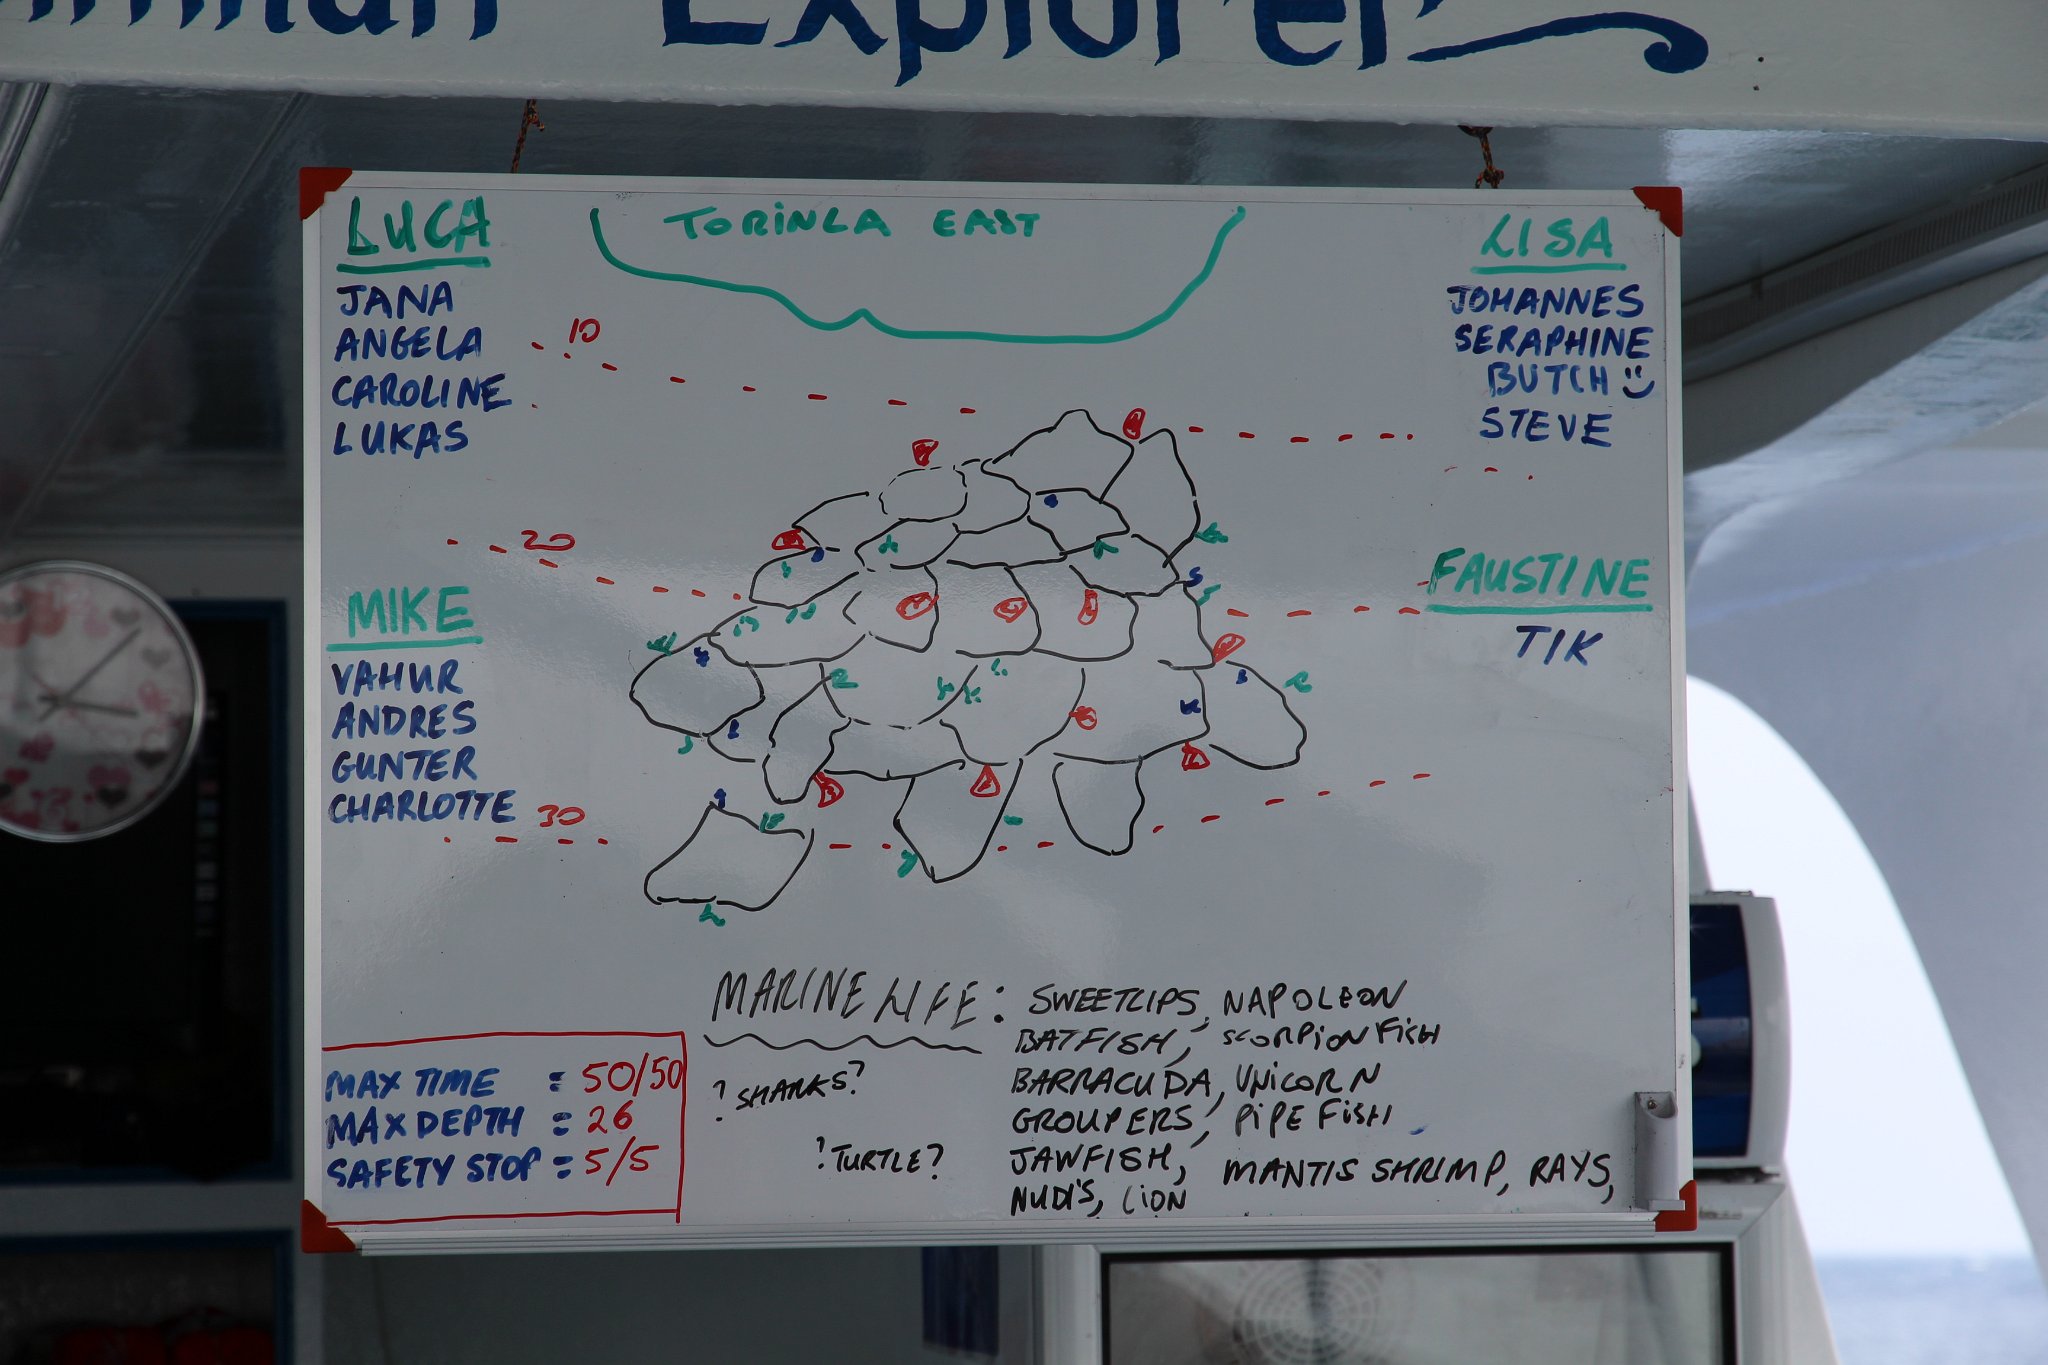 Explorer
TORINLA EAST
LUCA
JANA
ANGELA
CAROLINE
LUKAS
LISA
JOHANNES
SERAPHINE
BUTCH
STEVE
10
20
30
MIKE
VAHUR
ANDRES
GUNTER
CHARLOTTE
FAUSTINE
TIK
MARINE LIFE: SWEETLIPS, NAPOLEON
BATFISH, SCORPION FISH
BARRACUDA, UNICORN
GROUPERS, PIPE FISH
JAWFISH, MANTIS SHRIMP, RAYS,
NUDI'S, LION
? SHARKS?
? TURTLE?
MAX TIME = 50/50
MAX DEPTH = 26
SAFETY STOP = 5/5